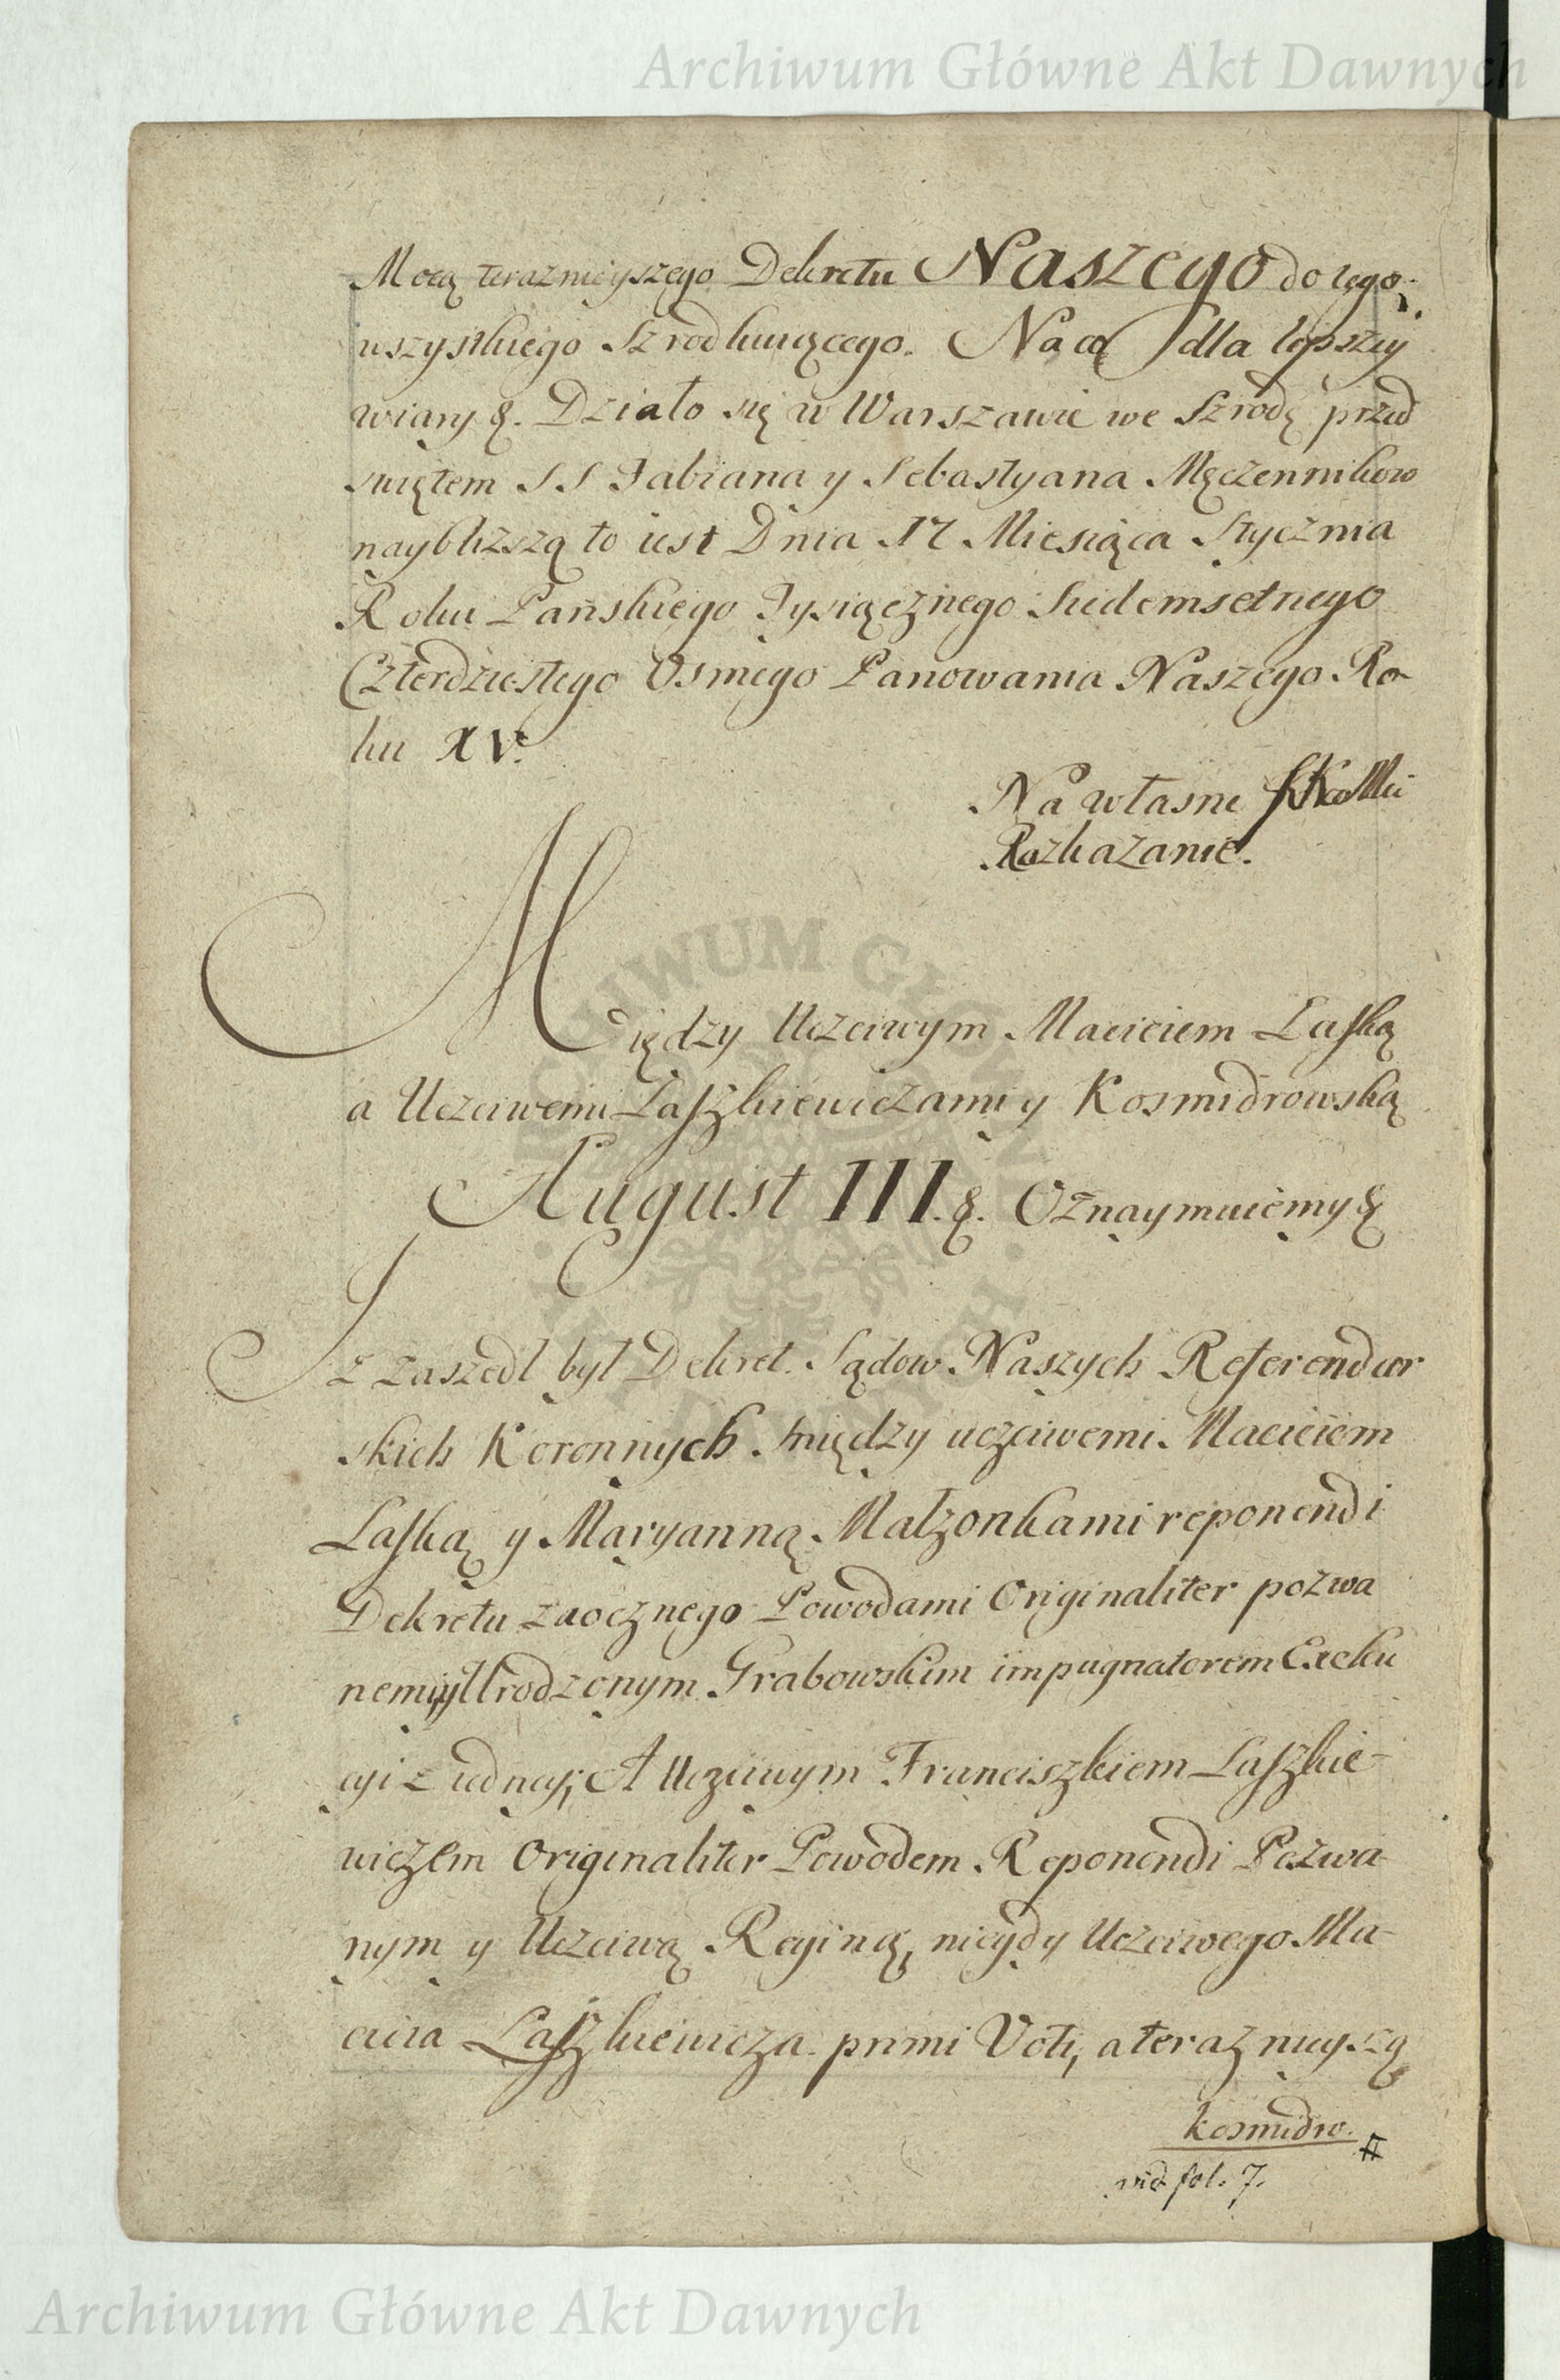 Archiwum Główne Akt Dawnych
Mocą teraznieyszego Dekretu Naszego do tego
wszystkiego Szrodkuiącego. Na co dla lepszey
wiary &. Działo się w Warszawie we Szrodę przed
swiętem SS Fabiana y Sebastyana Męczennikow
nayblizszą to iest Dnia 17 Miesiąca Stycznia
Roku Panskiego Tysiącznego Siedemsetnego
Czterdziestego Osmego Panowania Naszego Ro-
ku XV.
Na własne JKMci
Rozkazanie.
Między Uczciwym Macieiem Laską
a Uczciwemi Laszkiewiczami y Kosmidrowską
August III. &. Oznaymuiemy &
Iz zaszedl byl Dekret Sądow Naszych Referendar
skich Koronnych między uczciwemi Macieiem
Laską y Maryanną Małzonkami reponendi
Dekretu zaocznego Powodami Originaliter pozwa
nemi y Urodzonym Grabowskim impugnatorem Exeku
cyi z iedney; A Uczciwym Franciszkiem Laszkie-
wiczem Originaliter Powodem Reponendi Pozwa-
nym y Uczciwą Reginą, niegdy Uczciwego Ma-
cieia Laszkiewicza primi Voti, a teraznieyszą
kosmidro.
vid fol. 7.
Archiwum Główne Akt Dawnych